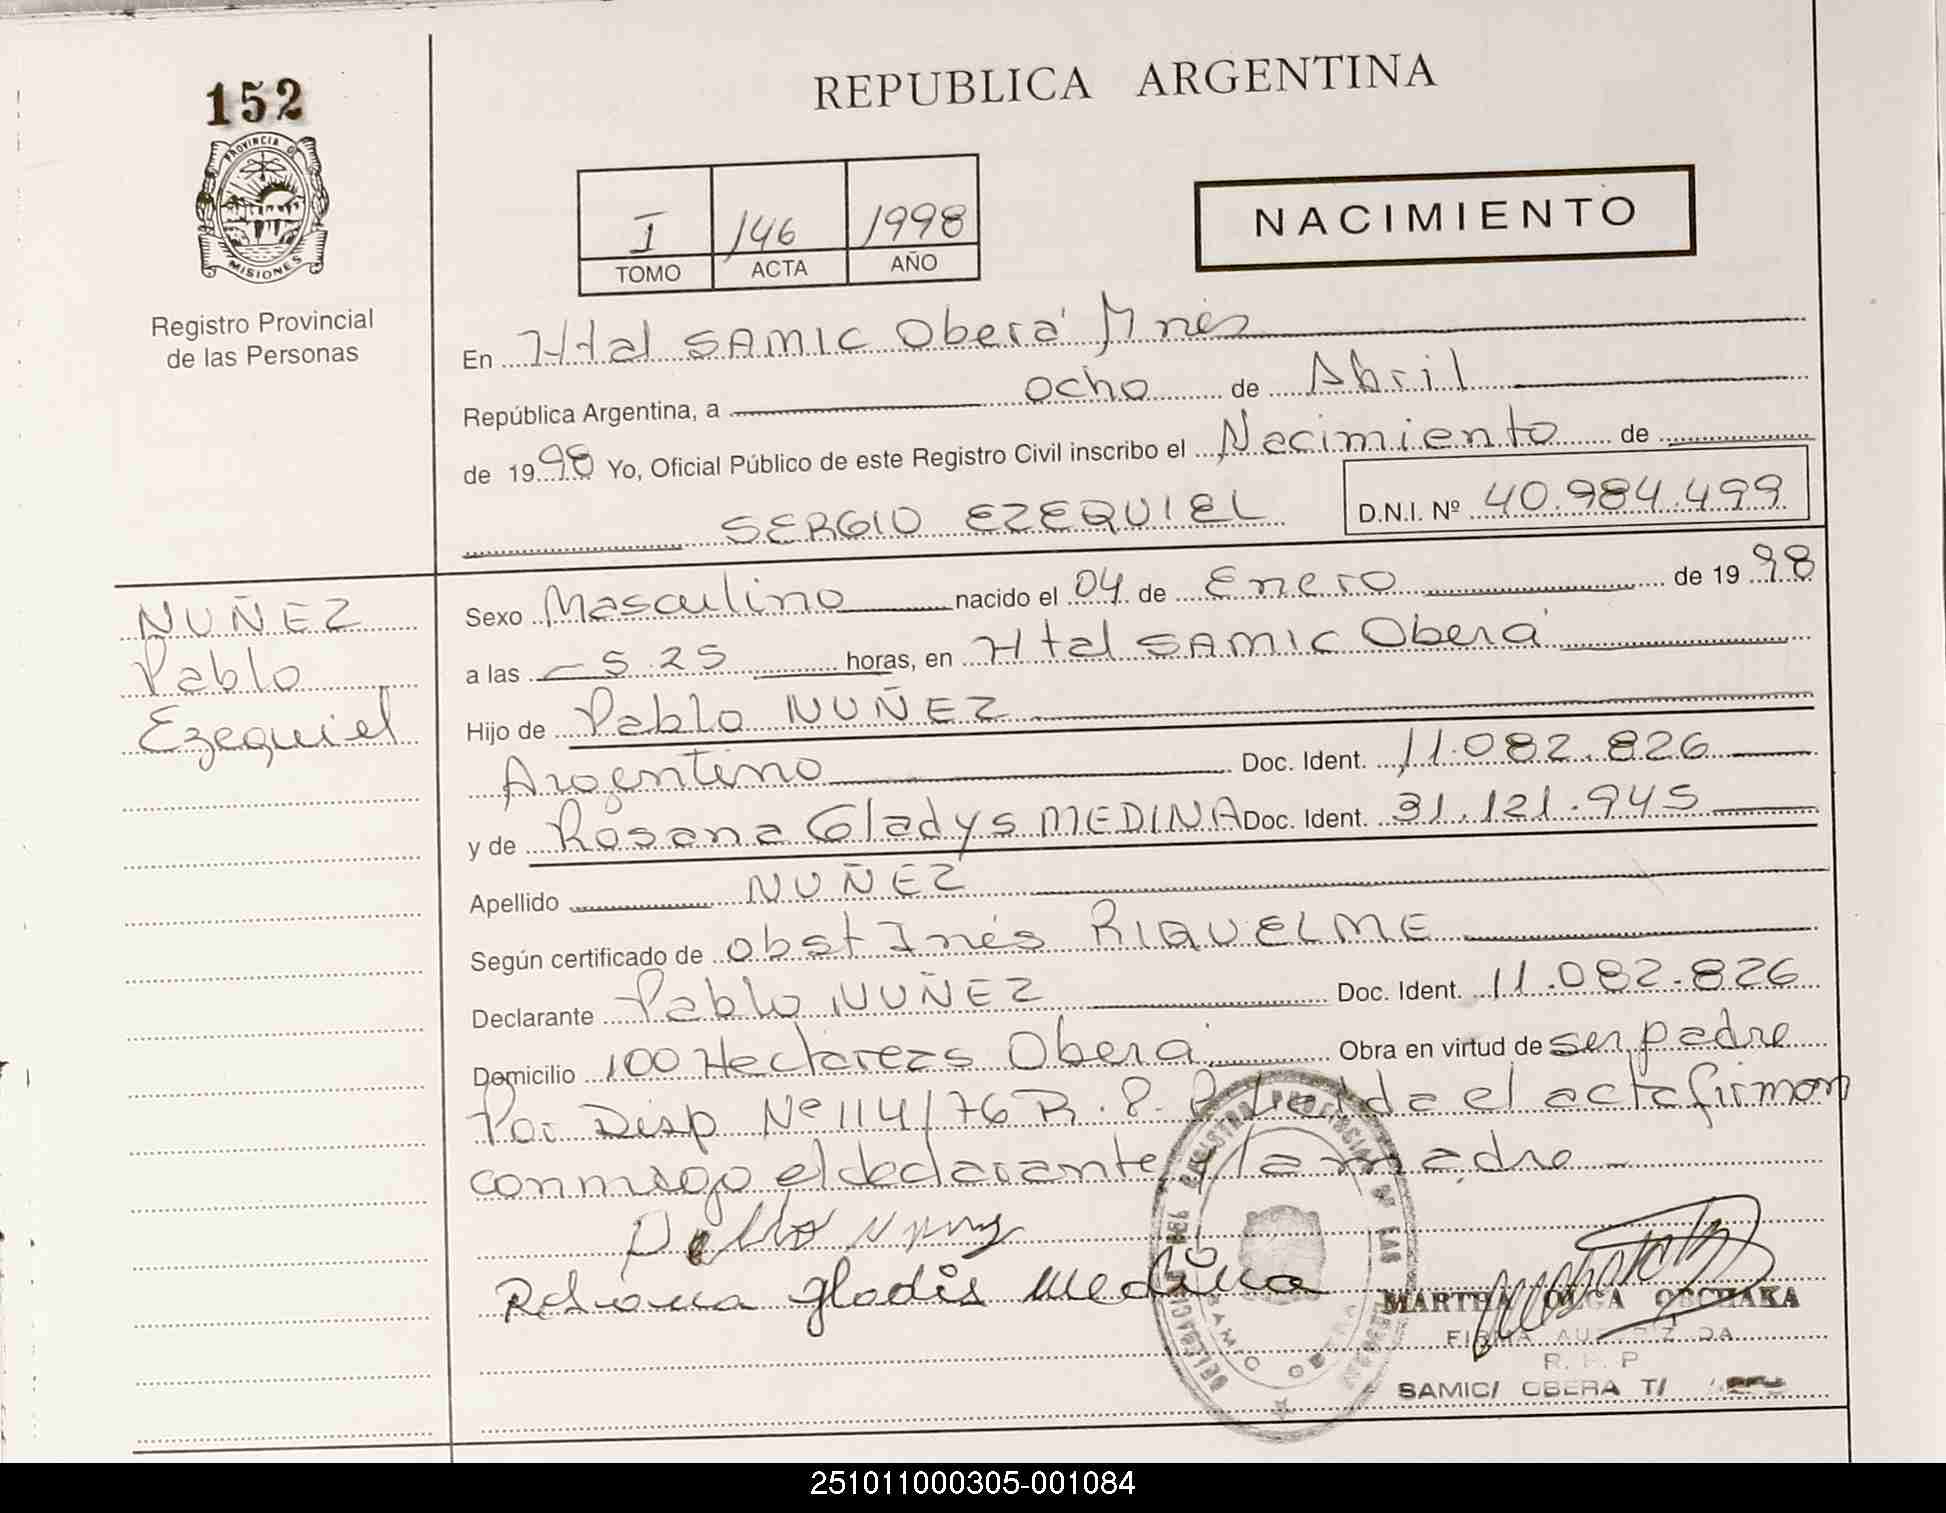 152
PROVINCIA DE
MISIONES
Registro Provincial
de las Personas
REPUBLICA ARGENTINA
I 146 1998
TOMO ACTA AÑO
NACIMIENTO
En Htal SAMIC Oberá Mnes
República Argentina, a ocho de Abril
de 1998 Yo, Oficial Público de este Registro Civil inscribo el Nacimiento de
SERGIO EZEQUIEL D.N.I. Nº 40.984.499
NUÑEZ
Pablo
Ezequiel
Sexo Masculino nacido el 04 de Enero de 1998
a las 5.25 horas, en Htal SAMIC Oberá
Hijo de Pablo NUÑEZ
Argentino Doc. Ident. 11.082.826
y de Rosana Gladys MEDINA Doc. Ident. 31.121.945
Apellido NUÑEZ
Según certificado de obst Inés RIQUELME
Declarante Pablo NUÑEZ Doc. Ident. 11.082.826
Domicilio 100 Hectareas Obera Obra en virtud de ser padre
Por Disp Nº 114/76 R.P.P leida el acta firman
conmigo el declarante y la madre
Pablo Nuñez
Rosana gladis Medina
MARTHA OLGA OBCHAKA
FIRMA AUTORIZADA
R. P. P
SAMIC/ OBERA T/
251011000305-001084